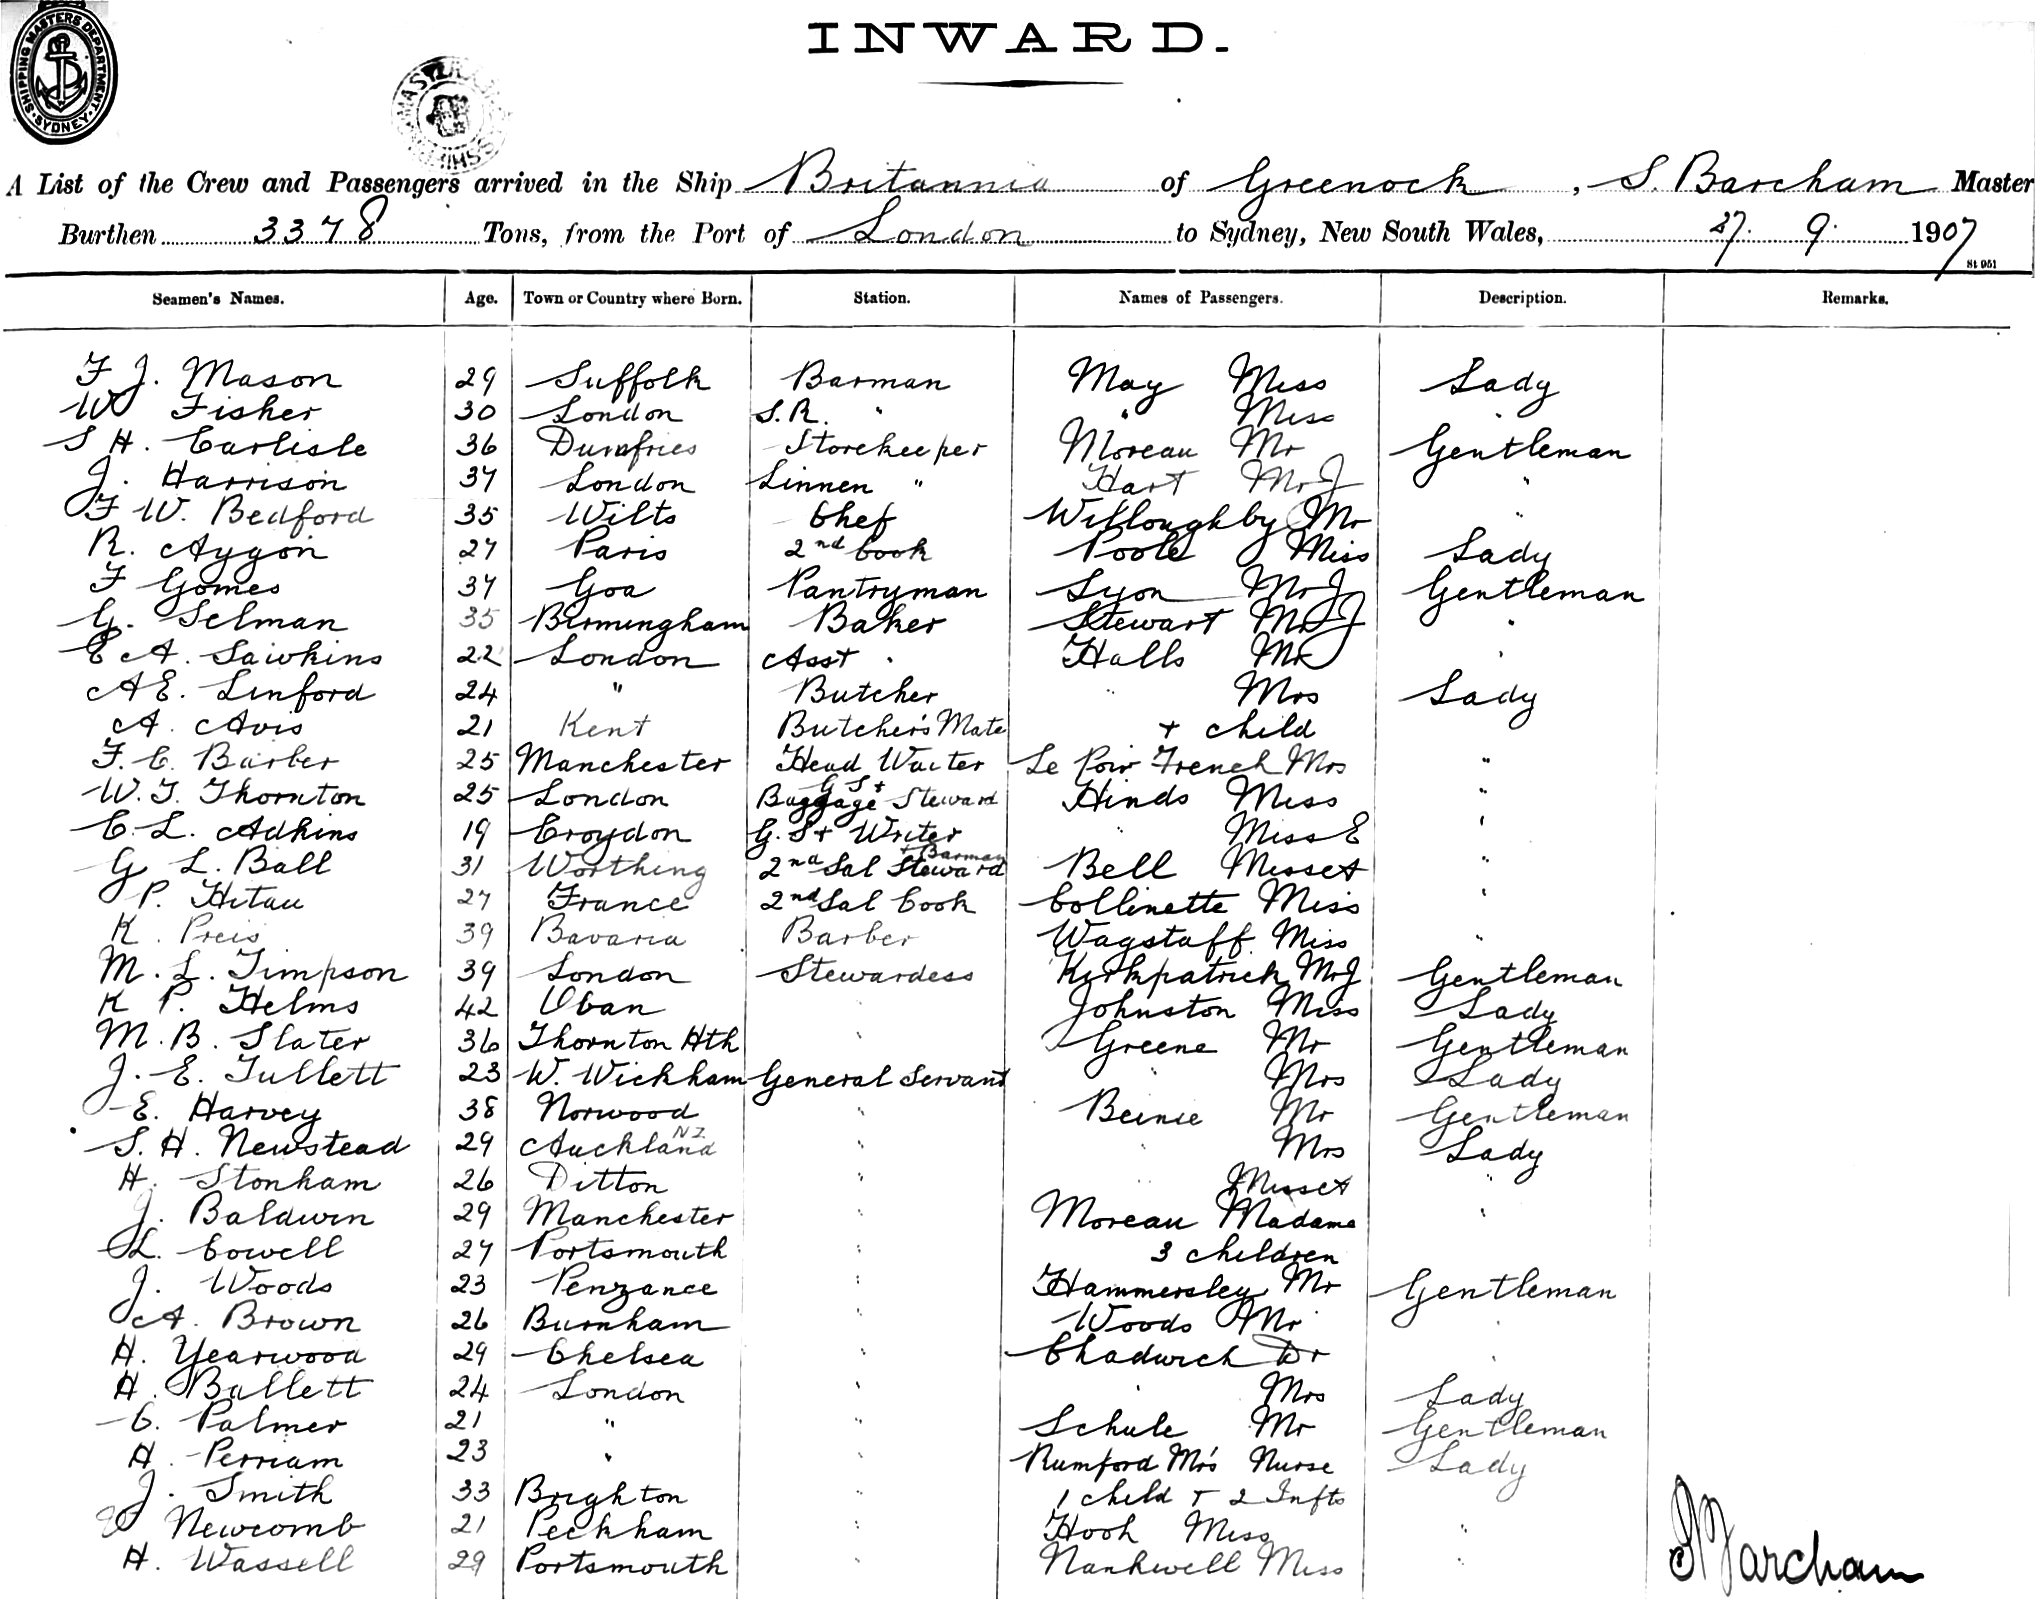 SHIPPING MASTERS DEPARTMENT
SYDNEY
INWARD.
A List of the Crew and Passengers arrived in the Ship Britannia of Greenock, S. Barcham Master
Burthen 3378 Tons, from the Port of London to Sydney, New South Wales, 27. 9. 1907
St 951
Seamen's Names. Age. Town or Country where Born. Station. Names of Passengers. Description. Remarks.
F J. Mason 29 Suffolk Barman May Miss Lady
W Fisher 30 London S.R. " " Miss "
S H. Carlisle 36 Dumfries Storekeeper Moreau Mr Gentleman
J. Harrison 37 London Linnen " Hart Mr J "
F W. Bedford 35 Wilts Chef Willoughby Mr "
R. Aygon 27 Paris 2nd Cook Poole Miss Lady
F Gomes 37 Goa Pantryman Lyon Mr J Gentleman
G. Selman 35 Birmingham Baker Stewart Mr J "
E A. Sawkins 22 London Asst " Halls Mr "
A E. Linford 24 " Butcher " Mrs Lady
A. Avis 21 Kent Butcher's Mate + child
F. C. Barber 25 Manchester Head Waiter Le Poir Trench Mrs "
W. T. Thornton 25 London G S + Baggage Steward Hinds Miss "
C. L. Adkins 19 Croydon G. S + Writer " Miss E "
G L. Ball 31 Worthing 2nd Sal Steward + Barman Bell Misset "
P. Hitau 27 France 2nd Sal Cook Collinette Miss "
K. Preis 39 Bavaria Barber Wagstaff Miss "
M. L. Timpson 39 London Stewardess Kirkpatrick Mr J Gentleman
K P. Helms 42 Oban " Johnston Miss Lady
M. B. Slater 36 Thornton Hth " Greene Mr Gentleman
J. E. Tullett 23 W. Wickham General Servant " Mrs Lady
E. Harvey 38 Norwood " Beinie Mr Gentleman
S. H. Newstead 29 Auckland NZ " " Mrs Lady
H. Stonham 26 Ditton " " Misset "
J. Baldwin 29 Manchester " Moreau Madame "
L. Cowell 27 Portsmouth " 3 children
J. Woods 23 Penzance " Hammersley Mr Gentleman
A. Brown 26 Burnham " Woods Mr "
H. Yearwood 29 Chelsea " Chadwick Dr "
H. Ballett 24 London " " Mrs Lady
C. Palmer 21 " " Schule Mr Gentleman
H. Perriam 23 " " Rumford Mrs Nurse Lady
J. Smith 33 Brighton " 1 child + 2 Infts
Newcomb 21 Peckham " Hook Miss "
H. Wassell 29 Portsmouth " Nankwell Miss "
S Barcham